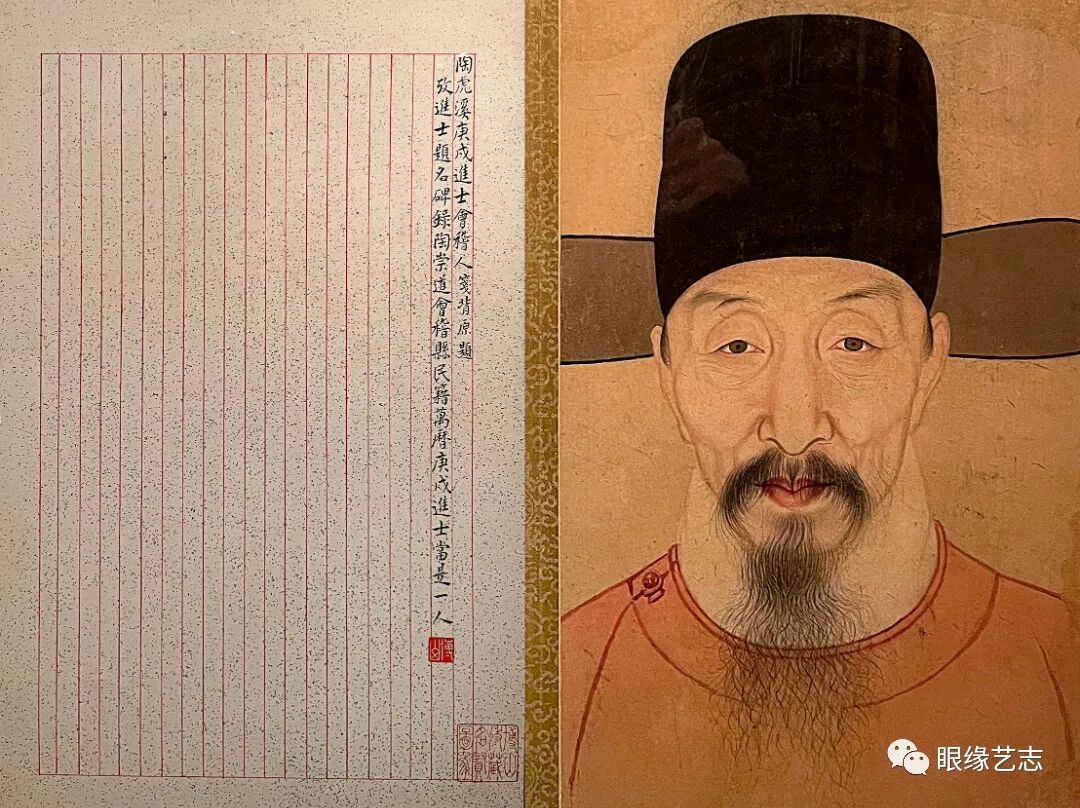 陶虎溪庚戌進士會稽人箋背原題
攷進士題名碑錄陶崇道會稽縣民籍萬曆庚戌進士當是一人
眼缘艺志